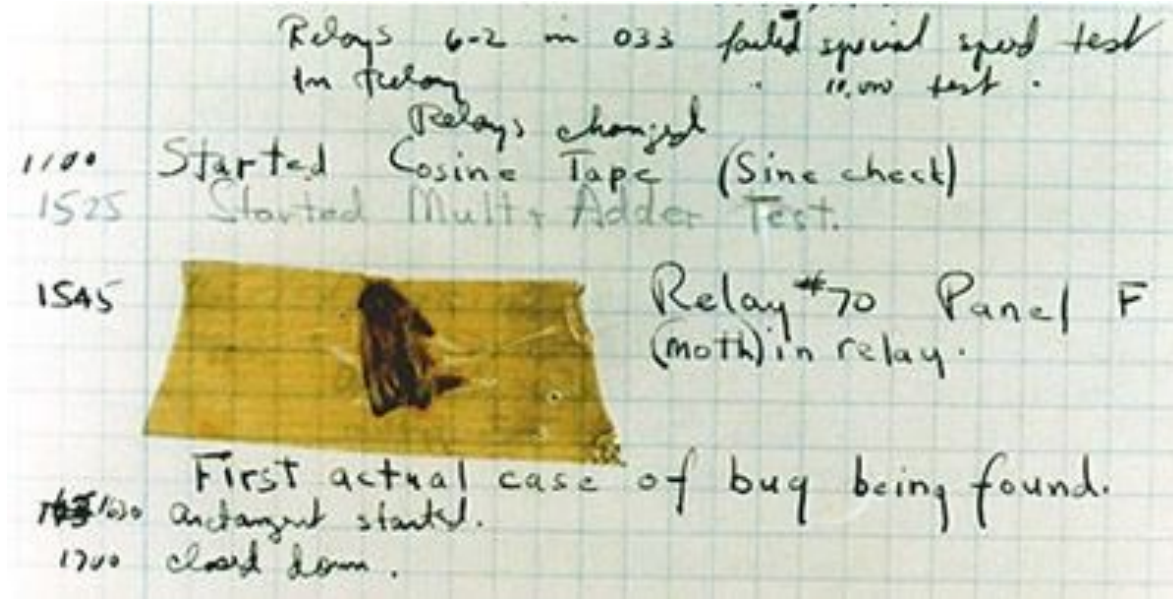 Relays 6-2 in 033 failed special speed test
In Relay 11,000 test.
Relays changed
1100 Started Cosine Tape (Sine check)
1525 Started Mult+ Adder Test.
1545 Relay #70 Panel F
(moth) in relay.
First actual case of bug being found.
1630 arctangent started.
1700 closed down.